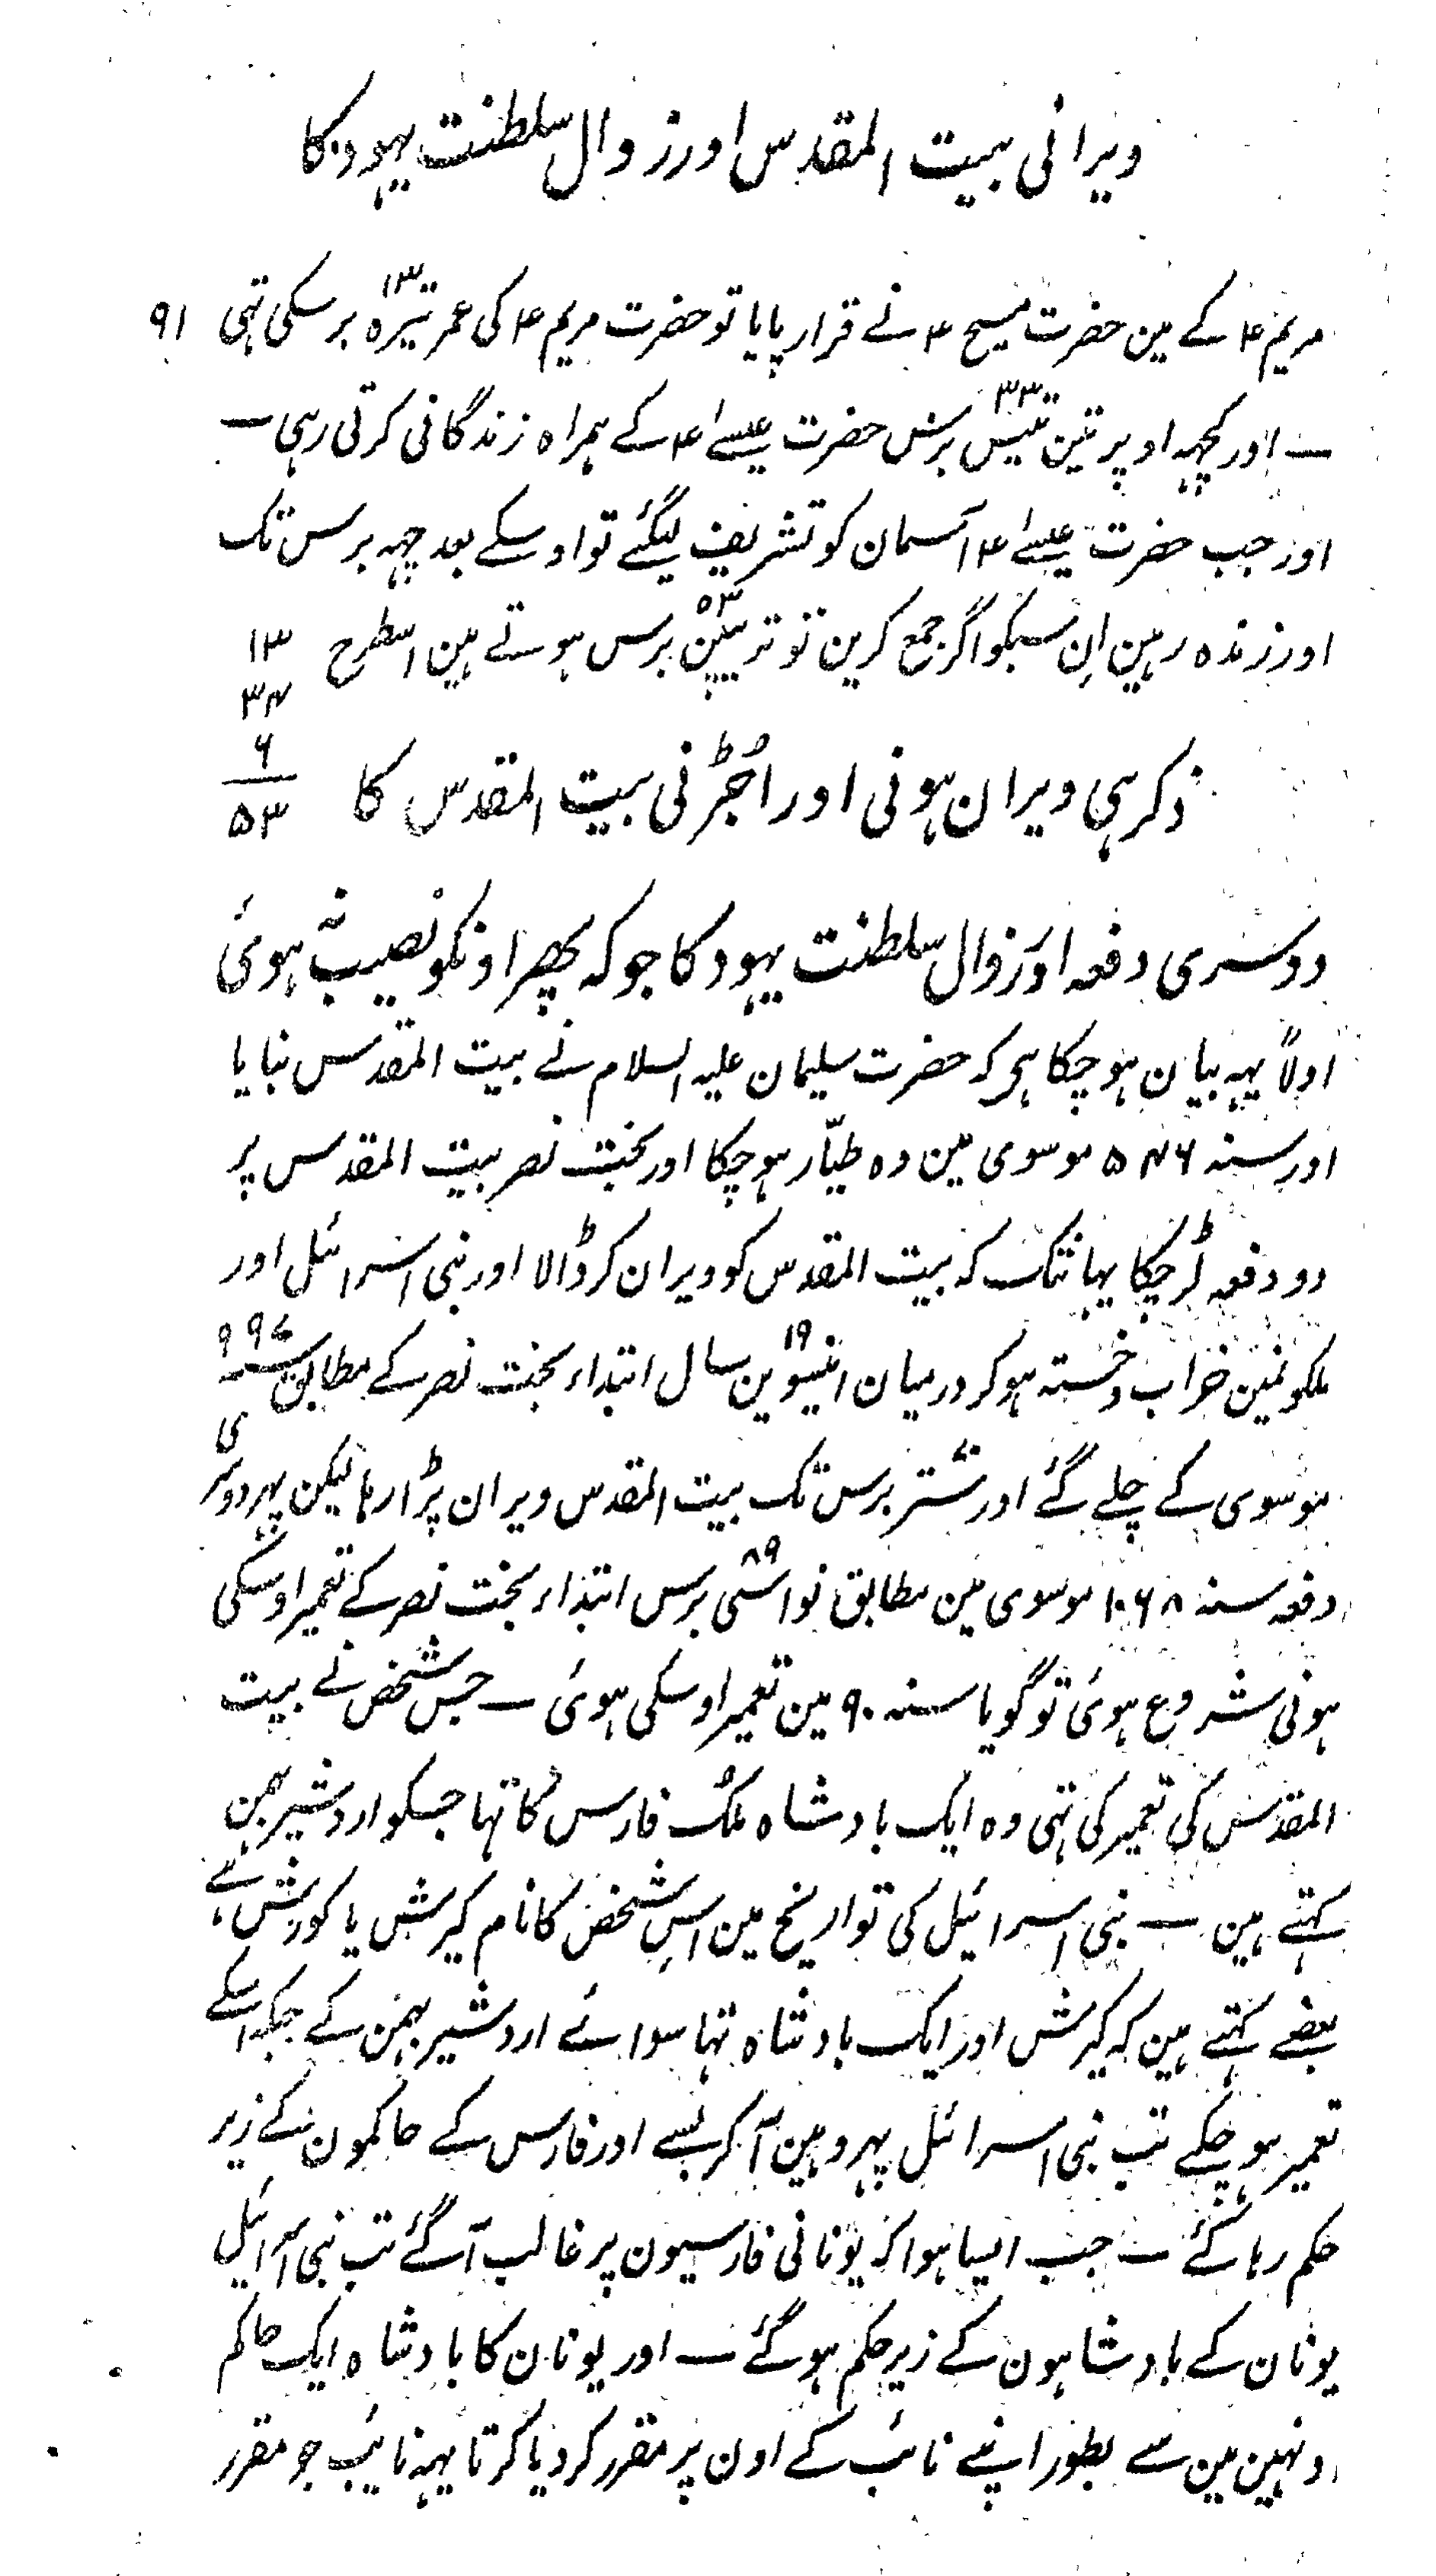 ویرانی بیت المقدس اور زوال سلطنت یہود کا
مریم ؑ کے مین حضرت مسیح ؑ نے قرار پایا تو حضرت مریم ؑ کی عمر تیرہ ۱۳ برسکی تہی ۹۱
ــ اور کچہہ اوپر تین تیس ۳۳ برس حضرت عیسےٰ ؑ کے ہمراہ زندگانی کرتی رہی ــ
اور جب حضرت عیسےٰ ؑ آسمان کو تشریف لیگئے تو اوسکے بعد چہہ برس تک
اور زندہ رہین اِن سبکو اگر جمع کرین تو ترپین ۵۳ برس ہوتے ہین اسطرح
۱۳
۳۴
۶
۵۳
ذکر ہی ویران ہونی اور اُجڑنی بیت المقدس کا
دوسری دفعہ اور زوال سلطنت یہود کا جو کہ پھر اونکو نصیب نہ ہوئی
اولاً یہہ بیان ہو چکا ہی کہ حضرت سلیمان علیہ السلام نے بیت المقدس بنایا
اور سنہ ۵۴۶ موسوی مین وہ طیّار ہو چکا اور بخت نصر بیت المقدس پر
دو دفعہ لڑ چکا یہانتک کہ بیت المقدس کو ویران کر ڈالا اور بنی اسرائیل اور
ملکونمین خراب و خستہ ہو کر درمیان انیسوین ۱۹ سال ابتداء بخت نصر کے مطابق سنہ ۹۹۷
موسوی کے چلے گئے اور ستر برس تک بیت المقدس ویران پڑا رہا لیکن پہر دوسری
دفعہ سنہ ۱۰۶۸ موسوی مین مطابق نواسی ۸۹ برس ابتداء بخت نصر کے تعمیر اوسکی
ہونی شروع ہوئی تو گویا سنہ ۹۰ مین تعمیر اوسکی ہوئی ــ جس شخص نے بیت
المقدس کی تعمیر کی تہی وہ ایک بادشاہ ملک فارس کا تہا جسکو اردشیر بہمن
کہتے ہین ــ بنی اسرائیل کی تواریخ مین اس شخص کا نام کیرش یا کورش ہے
بعضے کہتے ہین کہ کیرش اور ایک بادشاہ تہا سوائے اردشیر بہمن کے جبکہ اسکے
تعمیر ہو چکے تب بنی اسرائل پہر وہین آ کر بسے اور فارس کے حاکمون کے زیر
حکم رہا کئے ــ جب ایسا ہوا کہ یونانی فارسیون پر غالب آ گئے تب بنی اسرائیل
یونان کے بادشاہون کے زیر حکم ہو گئے ــ اور یونان کا بادشاہ ایک حاکم
اونہین مین سے بطور اپنے نائب کے اون پر مقرر کر دیا کرتا یہہ نائب جو مقرر